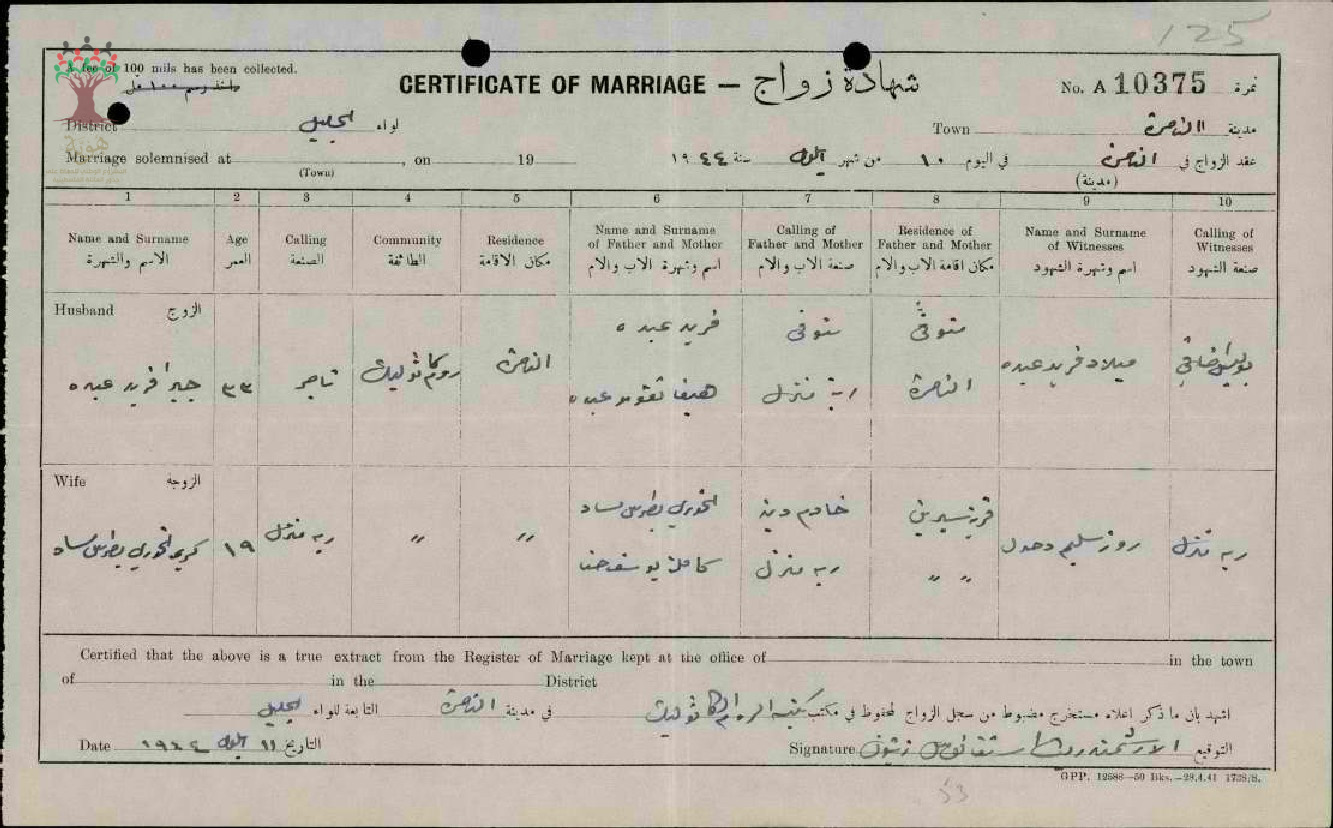 125
A fee of 100 mils has been collected.
CERTIFICATE OF MARRIAGE — شهادة زواج
No. A 10375 نمرة
District الجليل لواء
Town الناصرة مدينة
Marriage solemnised at , on 19
عقد الزواج في الناصرة في اليوم ١٠ من شهر ايلول سنة ١٩٤٤
(Town)
(مدينة)
1 2 3 4 5 6 7 8 9 10
Name and Surname Age Calling Community Residence Name and Surname of Father and Mother Calling of Father and Mother Residence of Father and Mother Name and Surname of Witnesses Calling of Witnesses
الاسم والشهرة العمر الصنعة الطائفة مكان الاقامة اسم وشهرة الاب والام صنعة الاب والام مكان اقامة الاب والام اسم وشهرة الشهود صنعة الشهود
Husband الزوج
فريد عبده متوفى متوفى
فريد عبده ٣٣ تاجر روم كاثوليك الناصرة
عبده ربة منزل الناصرة ميلاد فريد عبده بوليس
Wife الزوجه
الخوري بطرس خادم دين
الخوري بطرس ١٩ ربة منزل " "
كاملة يوسف حنا ربة منزل " " روز سليم ربة منزل
Certified that the above is a true extract from the Register of Marriage kept at the office of in the town
of in the District
اشهد بان ما ذكر اعلاه مستخرج مضبوط من سجل الزواج المحفوظ في مكتب الروم الكاثوليك في مدينة الناصرة التابعة للواء الجليل
Date ١٩٤٤ ايلول ١١ التاريخ
Signature التوقيع
GPP. 12688—50 Bks.—28.4.41 1728/S.
53